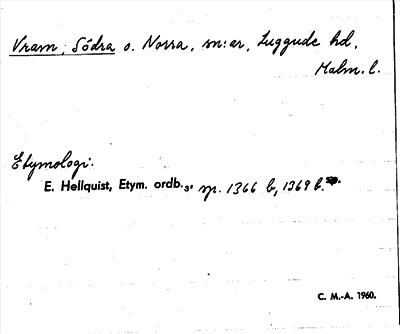 Vram, Södra o. Norra, sn:ar, Luggude hd,
Malm. l.
Etymologi:
E. Hellquist, Etym. ordb.₃, sp. 1366 b, 1369 b.
C. M.-A. 1960.